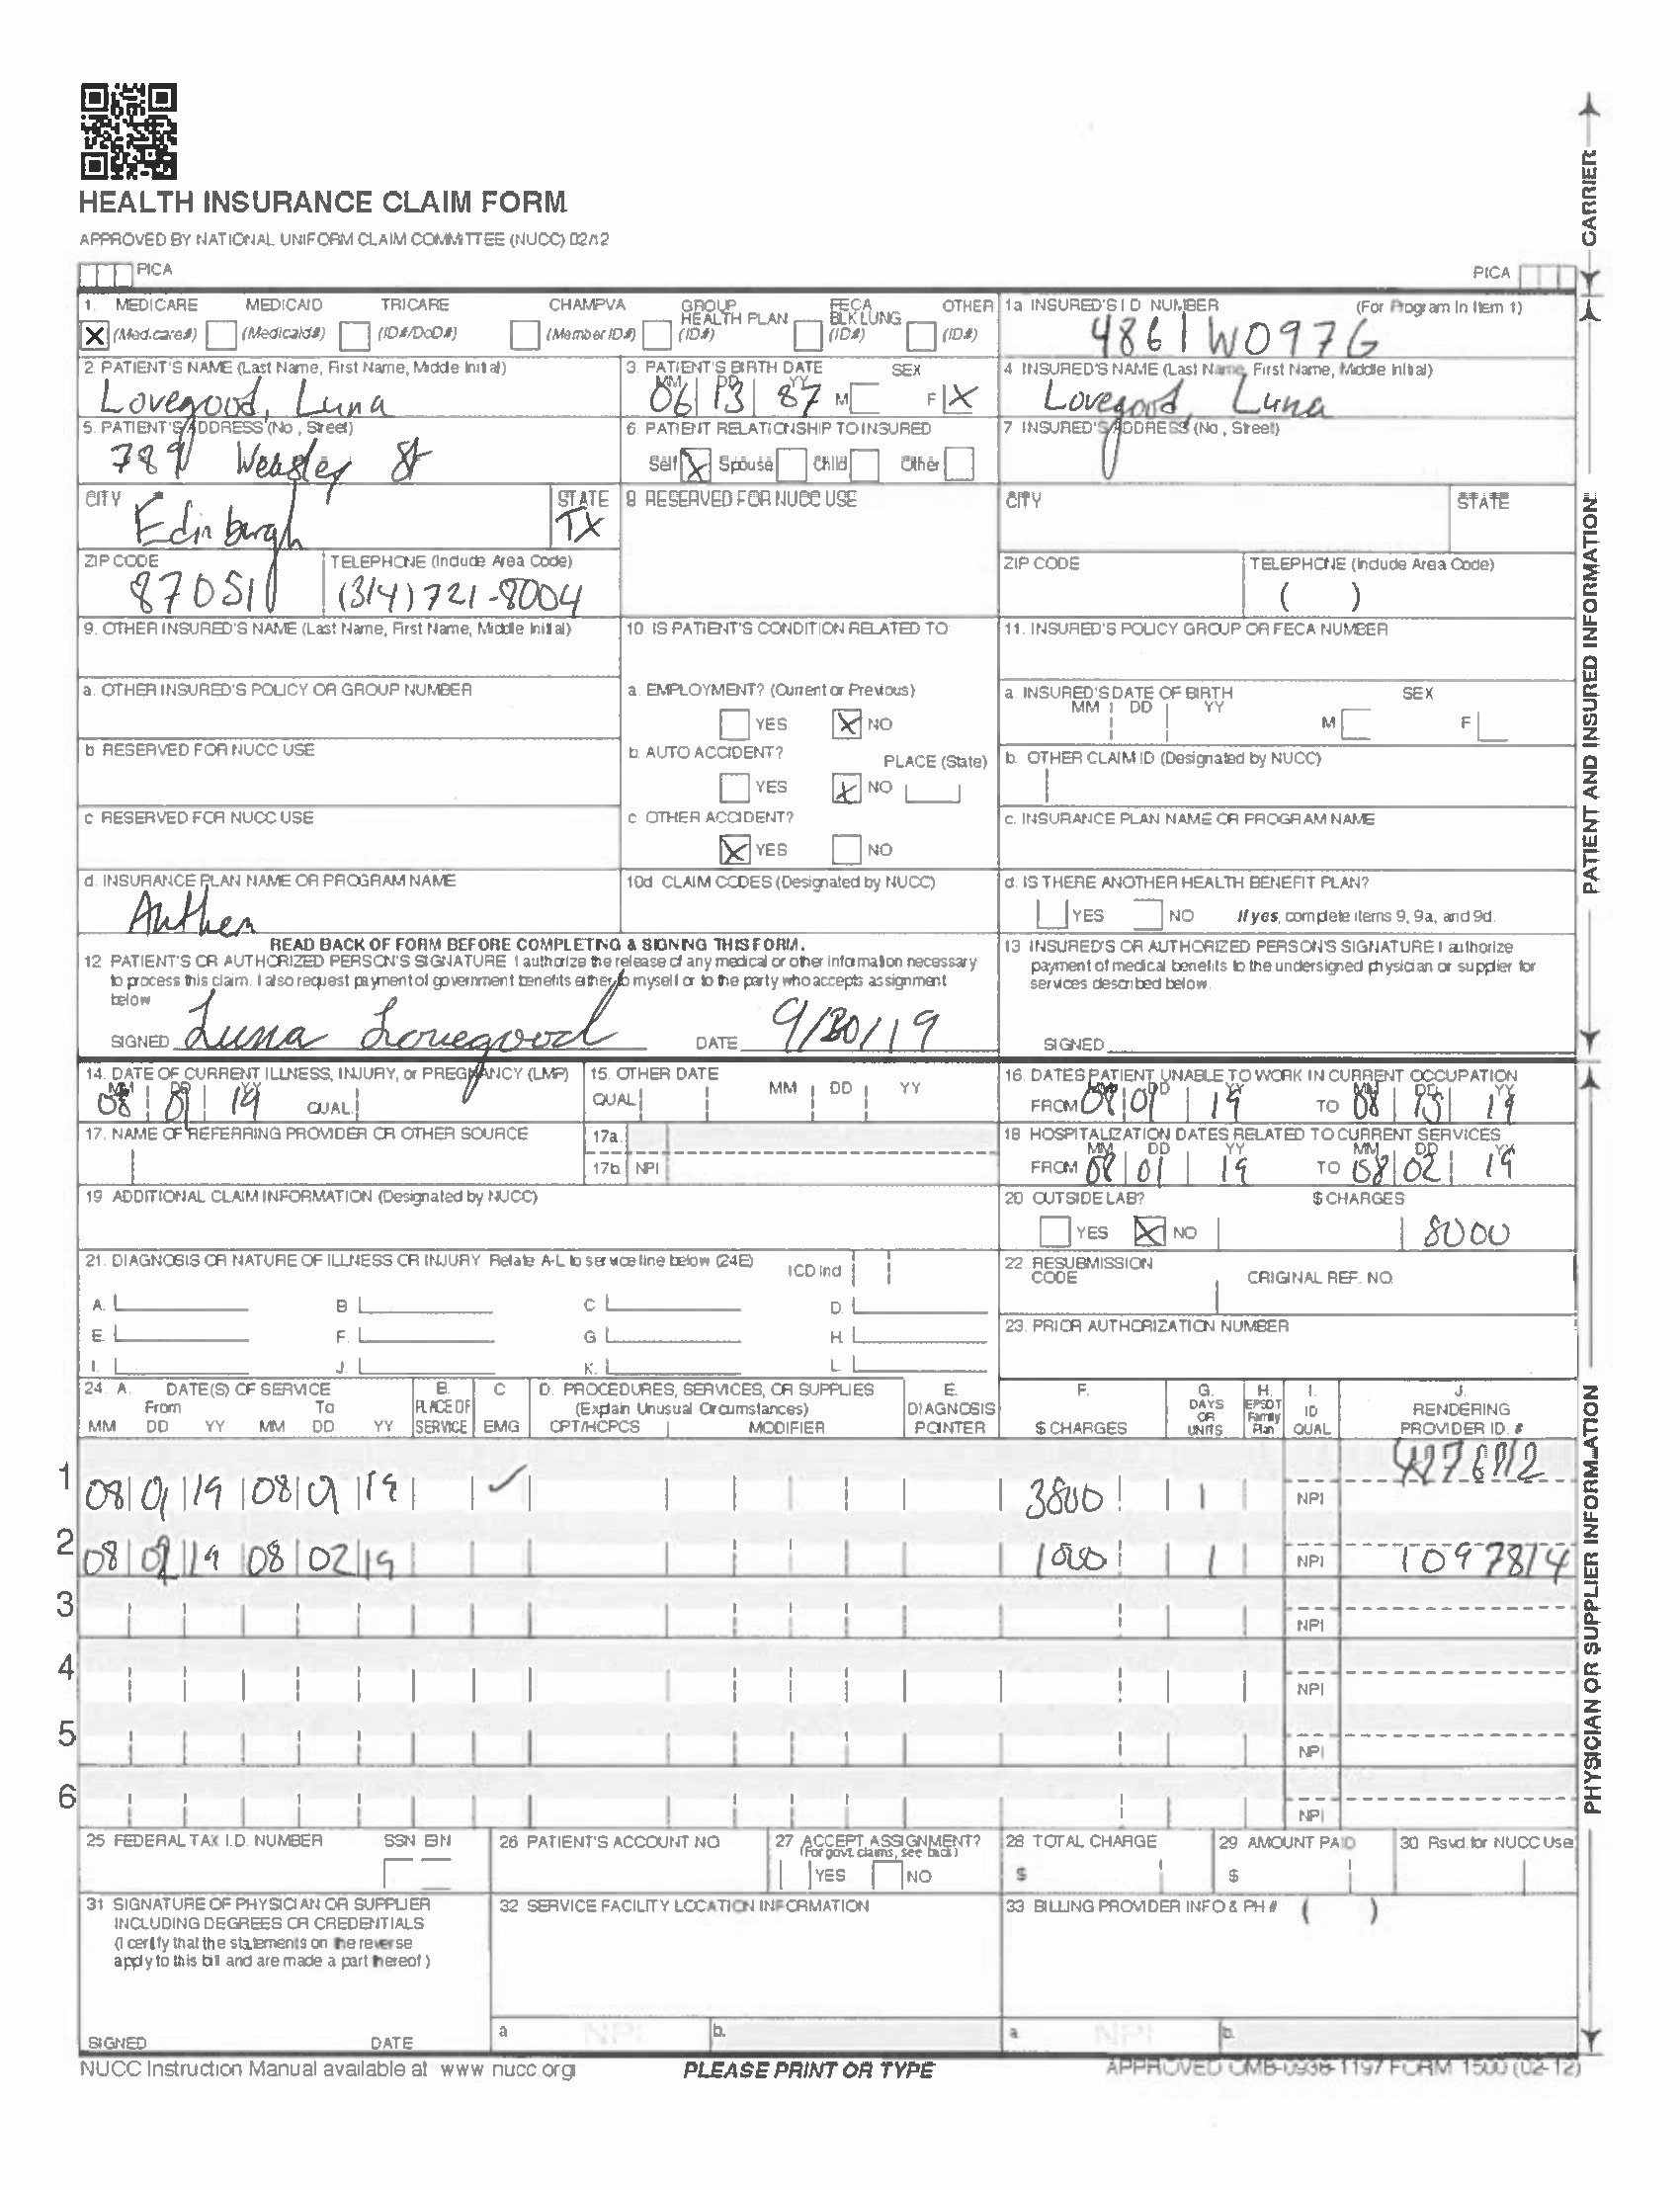 HEALTH INSURANCE CLAIM FORM
APPROVED BY NATIONAL UNIFORM CLAIM COMMITTEE (NUCC) 02/12
PICA
PICA
CARRIER
1. MEDICARE MEDICAID TRICARE CHAMPVA GROUP HEALTH PLAN FECA BLK LUNG OTHER
X (Medicare#) (Medicaid#) (ID#/DoD#) (Member ID#) (ID#) (ID#) (ID#)
1a INSURED'S I D NUMBER (For Program in Item 1)
4861W097G
2. PATIENT'S NAME (Last Name, First Name, Middle Initial)
Lovegood, Luna
3. PATIENT'S BIRTH DATE SEX
MM DD YY
06 13 87 M F X
4 INSURED'S NAME (Last Name, First Name, Middle Initial)
Lovegood, Luna
5. PATIENT'S ADDRESS (No., Street)
789 Weasley St
6. PATIENT RELATIONSHIP TO INSURED
Self X Spouse Child Other
7 INSURED'S ADDRESS (No., Street)
CITY STATE
Edinburgh TX
8 RESERVED FOR NUCC USE
CITY STATE
ZIP CODE TELEPHONE (Include Area Code)
87051 (314) 721-8004
ZIP CODE TELEPHONE (Include Area Code)
( )
9. OTHER INSURED'S NAME (Last Name, First Name, Middle Initial)
10. IS PATIENT'S CONDITION RELATED TO
11. INSURED'S POLICY GROUP OR FECA NUMBER
a. OTHER INSURED'S POLICY OR GROUP NUMBER
a. EMPLOYMENT? (Current or Previous)
YES X NO
a. INSURED'S DATE OF BIRTH SEX
MM DD YY M F
b RESERVED FOR NUCC USE
b. AUTO ACCIDENT? PLACE (State)
YES X NO
b. OTHER CLAIM ID (Designated by NUCC)
c RESERVED FOR NUCC USE
c OTHER ACCIDENT?
X YES NO
c. INSURANCE PLAN NAME OR PROGRAM NAME
d. INSURANCE PLAN NAME OR PROGRAM NAME
Anthem
10d CLAIM CODES (Designated by NUCC)
d. IS THERE ANOTHER HEALTH BENEFIT PLAN?
YES NO If yes, complete items 9, 9a, and 9d.
PATIENT AND INSURED INFORMATION
READ BACK OF FORM BEFORE COMPLETING & SIGNING THIS FORM.
12 PATIENT'S OR AUTHORIZED PERSON'S SIGNATURE I authorize the release of any medical or other information necessary
to process this claim. I also request payment of government benefits either to myself or to the party who accepts assignment
below
SIGNED Luna Lovegood DATE 9/30/19
13 INSURED'S OR AUTHORIZED PERSON'S SIGNATURE I authorize
payment of medical benefits to the undersigned physician or supplier for
services described below.
SIGNED
14. DATE OF CURRENT ILLNESS, INJURY, or PREGNANCY (LMP)
MM DD YY
08 01 19 QUAL.
15. OTHER DATE
QUAL. MM DD YY
16. DATES PATIENT UNABLE TO WORK IN CURRENT OCCUPATION
MM DD YY MM DD YY
FROM 08 01 19 TO 08 15 19
17. NAME OF REFERRING PROVIDER OR OTHER SOURCE
17a.
17b NPI
18 HOSPITALIZATION DATES RELATED TO CURRENT SERVICES
MM DD YY MM DD YY
FROM 08 01 19 TO 08 02 19
19 ADDITIONAL CLAIM INFORMATION (Designated by NUCC)
20 OUTSIDE LAB? $ CHARGES
YES X NO 8000
21. DIAGNOSIS OR NATURE OF ILLNESS OR INJURY Relate A-L to service line below (24E) ICD Ind
A. B C D.
E. F. G H.
I. J. K. L.
22. RESUBMISSION CODE ORIGINAL REF. NO.
23. PRIOR AUTHORIZATION NUMBER
24. A. DATE(S) OF SERVICE B. C D. PROCEDURES, SERVICES, OR SUPPLIES E. F. G. H. I. J.
From To PLACE OF (Explain Unusual Circumstances) DIAGNOSIS DAYS OR EPSDT Family ID RENDERING
MM DD YY MM DD YY SERVICE EMG CPT/HCPCS MODIFIER POINTER $ CHARGES UNITS Plan QUAL. PROVIDER ID. #
1 08 01 19 08 01 19 ✓ 3800 1 NPI
2 08 02 19 08 02 19 1000 1 NPI 1097814
3 NPI
4 NPI
5 NPI
6 NPI
25 FEDERAL TAX I.D. NUMBER SSN EIN
26 PATIENT'S ACCOUNT NO
27 ACCEPT ASSIGNMENT?
(For govt. claims, see back)
YES NO
28 TOTAL CHARGE
$
29 AMOUNT PAID
$
30 Rsvd. for NUCC Use
31 SIGNATURE OF PHYSICIAN OR SUPPLIER
INCLUDING DEGREES OR CREDENTIALS
(I certify that the statements on the reverse
apply to this bill and are made a part thereof)
SIGNED DATE
32 SERVICE FACILITY LOCATION INFORMATION
a NPI b.
33 BILLING PROVIDER INFO & PH # ( )
a. NPI b.
PHYSICIAN OR SUPPLIER INFORMATION
NUCC Instruction Manual available at www nucc.org
PLEASE PRINT OR TYPE
APPROVED OMB-0938-1197 FORM 1500 (02-12)